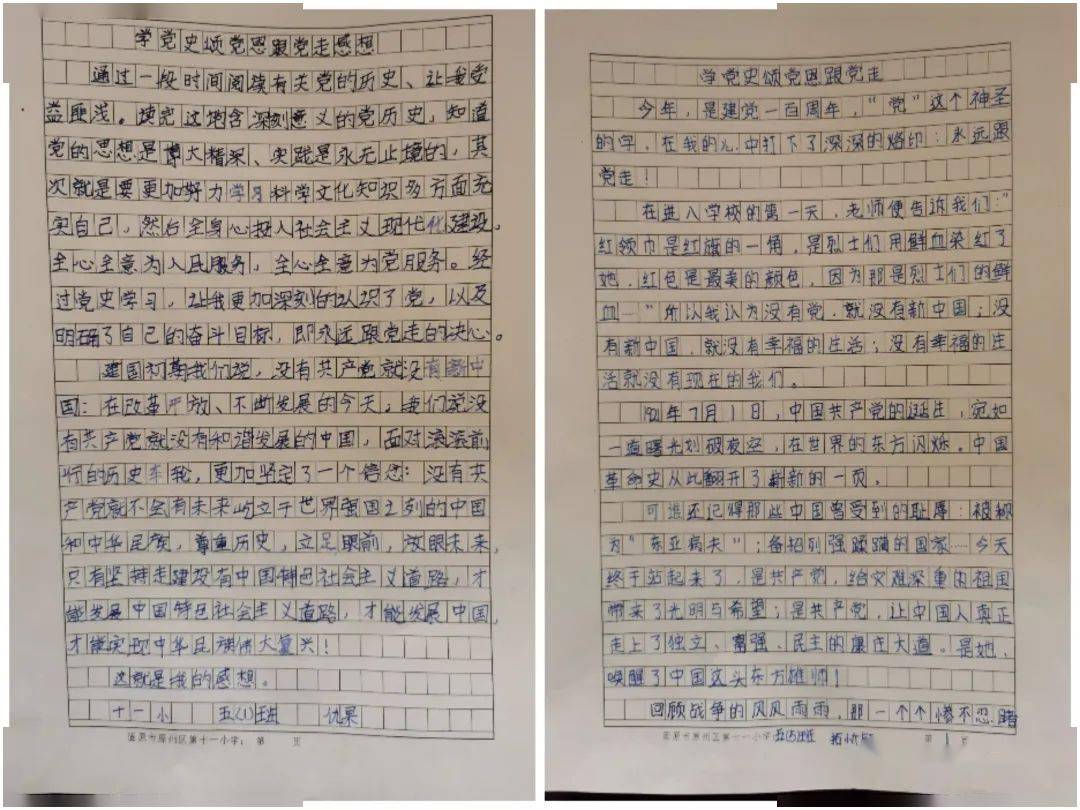 学党史颂党恩跟党走感想
通过一段时间阅读有关党的历史、让我受
益匪浅。读完这饱含深刻意义的党历史，知道
党的思想是博大精深、实践是永无止境的，其
次就是要更加努力学习科学文化知识多方面充
实自己，然后全身心投入社会主义现代化建设，
全心全意为人民服务，全心全意为党服务。经
过党史学习，让我更加深刻的认识了党，以及
明确了自己的奋斗目标，即永远跟党走的决心。
建国初期我们说，没有共产党就没有新中
国：在改革开放、不断发展的今天，我们说没
有共产党就没有和谐发展的中国，面对滚滚前
行的历史车轮，更加坚定了一个信念：没有共
产党就不会有未来屹立于世界强国之列的中国
和中华民族，尊重历史，立足眼前，放眼未来，
只有坚持走建设有中国特色社会主义道路，才
能发展中国特色社会主义道路，才能发展中国，
才能实现中华民族伟大复兴！
这就是我的感想。
十一小 五(1)班
固原市原州区第十一小学： 第 页
学党史颂党恩跟党走
今年，是建党一百周年，“党”这个神圣
的字，在我的心中打下了深深的烙印：永远跟
党走！
在进入学校的第一天，老师便告诉我们：“
红领巾是红旗的一角，是烈士们用鲜血染红了
她，红色是最美的颜色，因为那是烈士们的鲜
血……”所以我认为没有党，就没有新中国；没
有新中国，就没有幸福的生活；没有幸福的生
活就没有现在的我们。
1921年7月1日，中国共产党的诞生，宛如
一道曙光划破夜空，在世界的东方闪烁。中国
革命史从此翻开了崭新的一页。
可谁还记得那些中国曾受到的耻辱：被称
为“东亚病夫”；备招列强蹂躏的国家……今天
终于站起来了，是共产党，给灾难深重的祖国
带来了光明与希望；是共产党，让中国人真正
走上了独立、富强、民主的康庄大道。是她，
唤醒了中国这头东方雄师！
回顾战争的风风雨雨，那一个个惨不忍睹
固原市原州区第十一小学：五(5)班 第 1 页